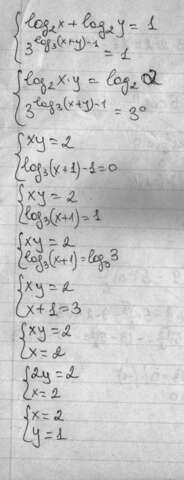 log₂x + log₂y = 1
3^(log₃(x+y)-1) = 1
log₂x·y = log₂2
3^(log₃(x+y)-1) = 3⁰
xy = 2
log₃(x+1)-1=0
xy = 2
log₃(x+1) = 1
xy = 2
log₃(x+1) = log₃3
xy = 2
x+1=3
xy = 2
x = 2
2y = 2
x = 2
x = 2
y = 1